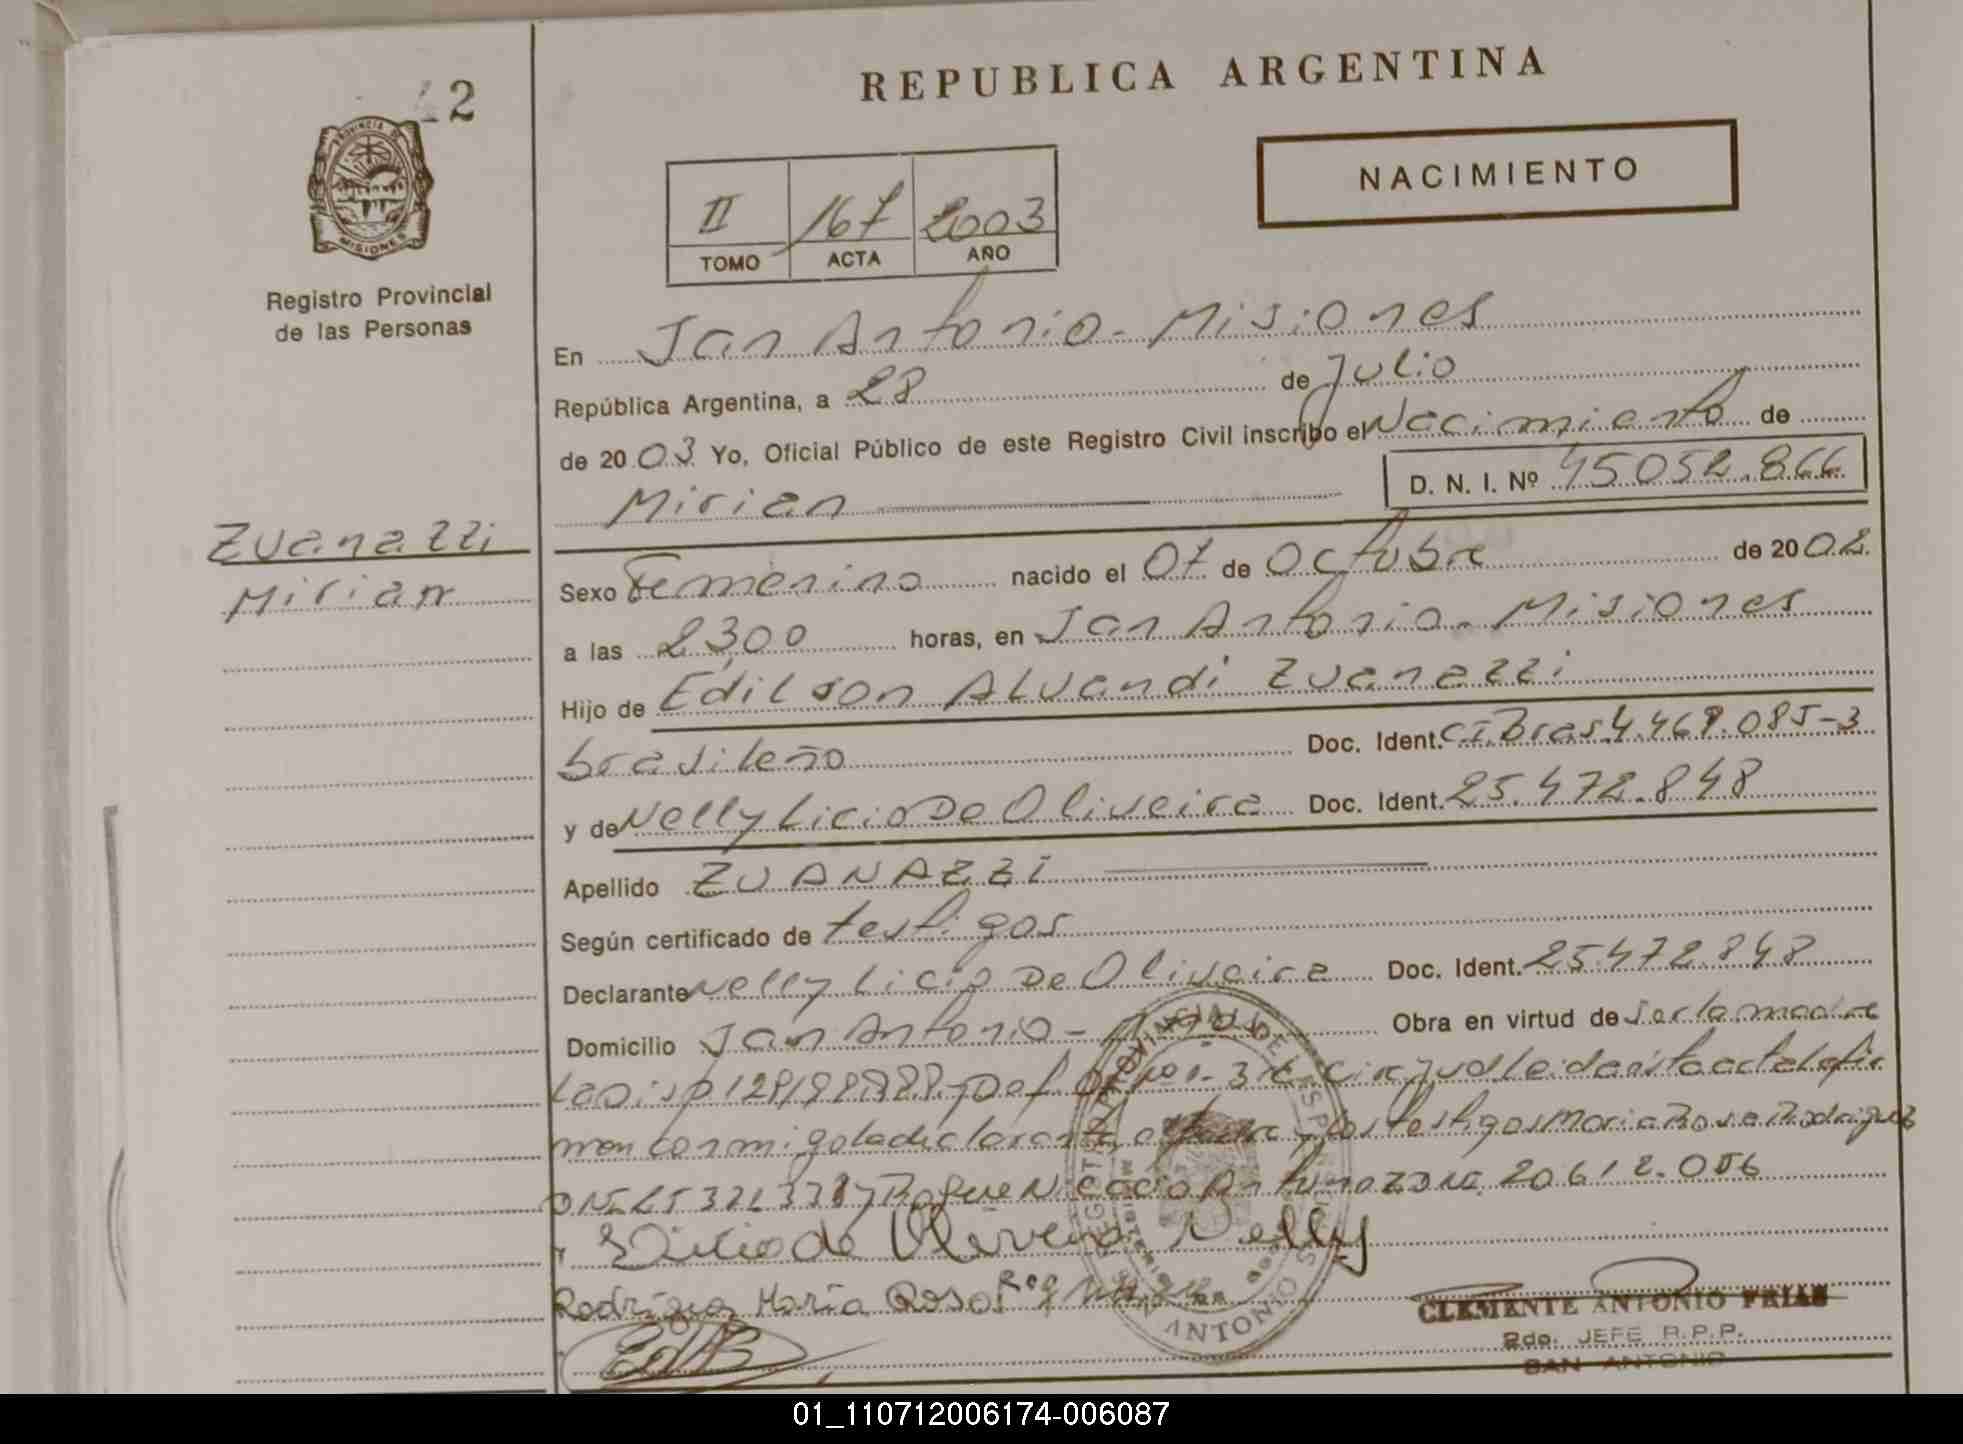 2
REPUBLICA ARGENTINA
PROVINCIA DE
MISIONES
Registro Provincial
de las Personas
NACIMIENTO
II 167 2003
TOMO ACTA AÑO
En San Antonio - Misiones
República Argentina, a 28 de Julio
de 2003 Yo, Oficial Público de este Registro Civil inscribo el Nacimiento de
Mirian
D. N. I. Nº 45052.866
Zuanazzi
Mirian
Sexo Femenino nacido el 07 de Octubre de 2002
a las 23,00 horas, en San Antonio - Misiones
Hijo de Edilson Alvandi Zuanazzi
brasileño Doc. Ident. CI.Bras 4.468.085-3
y de Nelly Licio De Oliveira Doc. Ident. 25.472.848
Apellido ZUANAZZI
Según certificado de testigos
Declarante Nelly Licio De Oliveira Doc. Ident. 25.472.848
Domicilio San Antonio - Obra en virtud de ser la madre
conmigo la declarante y los testigos Maria Rosa Rodriguez
20.612.056
Licio de Oliveira Nelly
Rodríguez María Rosa
ANTONIO
CLEMENTE ANTONIO FRIAS
2do. JEFE R.P.P.
SAN ANTONIO
01_110712006174-006087